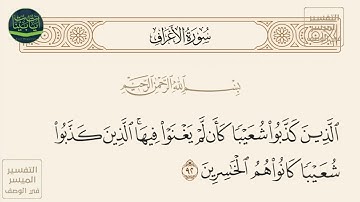 سُورَةُ الأَعْرَافِ
بِسْمِ اللَّهِ الرَّحْمَٰنِ الرَّحِيمِ
الَّذِينَ كَذَّبُوا۟ شُعَيْبًا كَأَن لَّمْ يَغْنَوْا۟ فِيهَا ۚ الَّذِينَ كَذَّبُوا۟
شُعَيْبًا كَانُوا۟ هُمُ الْخَٰسِرِينَ ٩٢
التفسير
الميسر
في الوصف